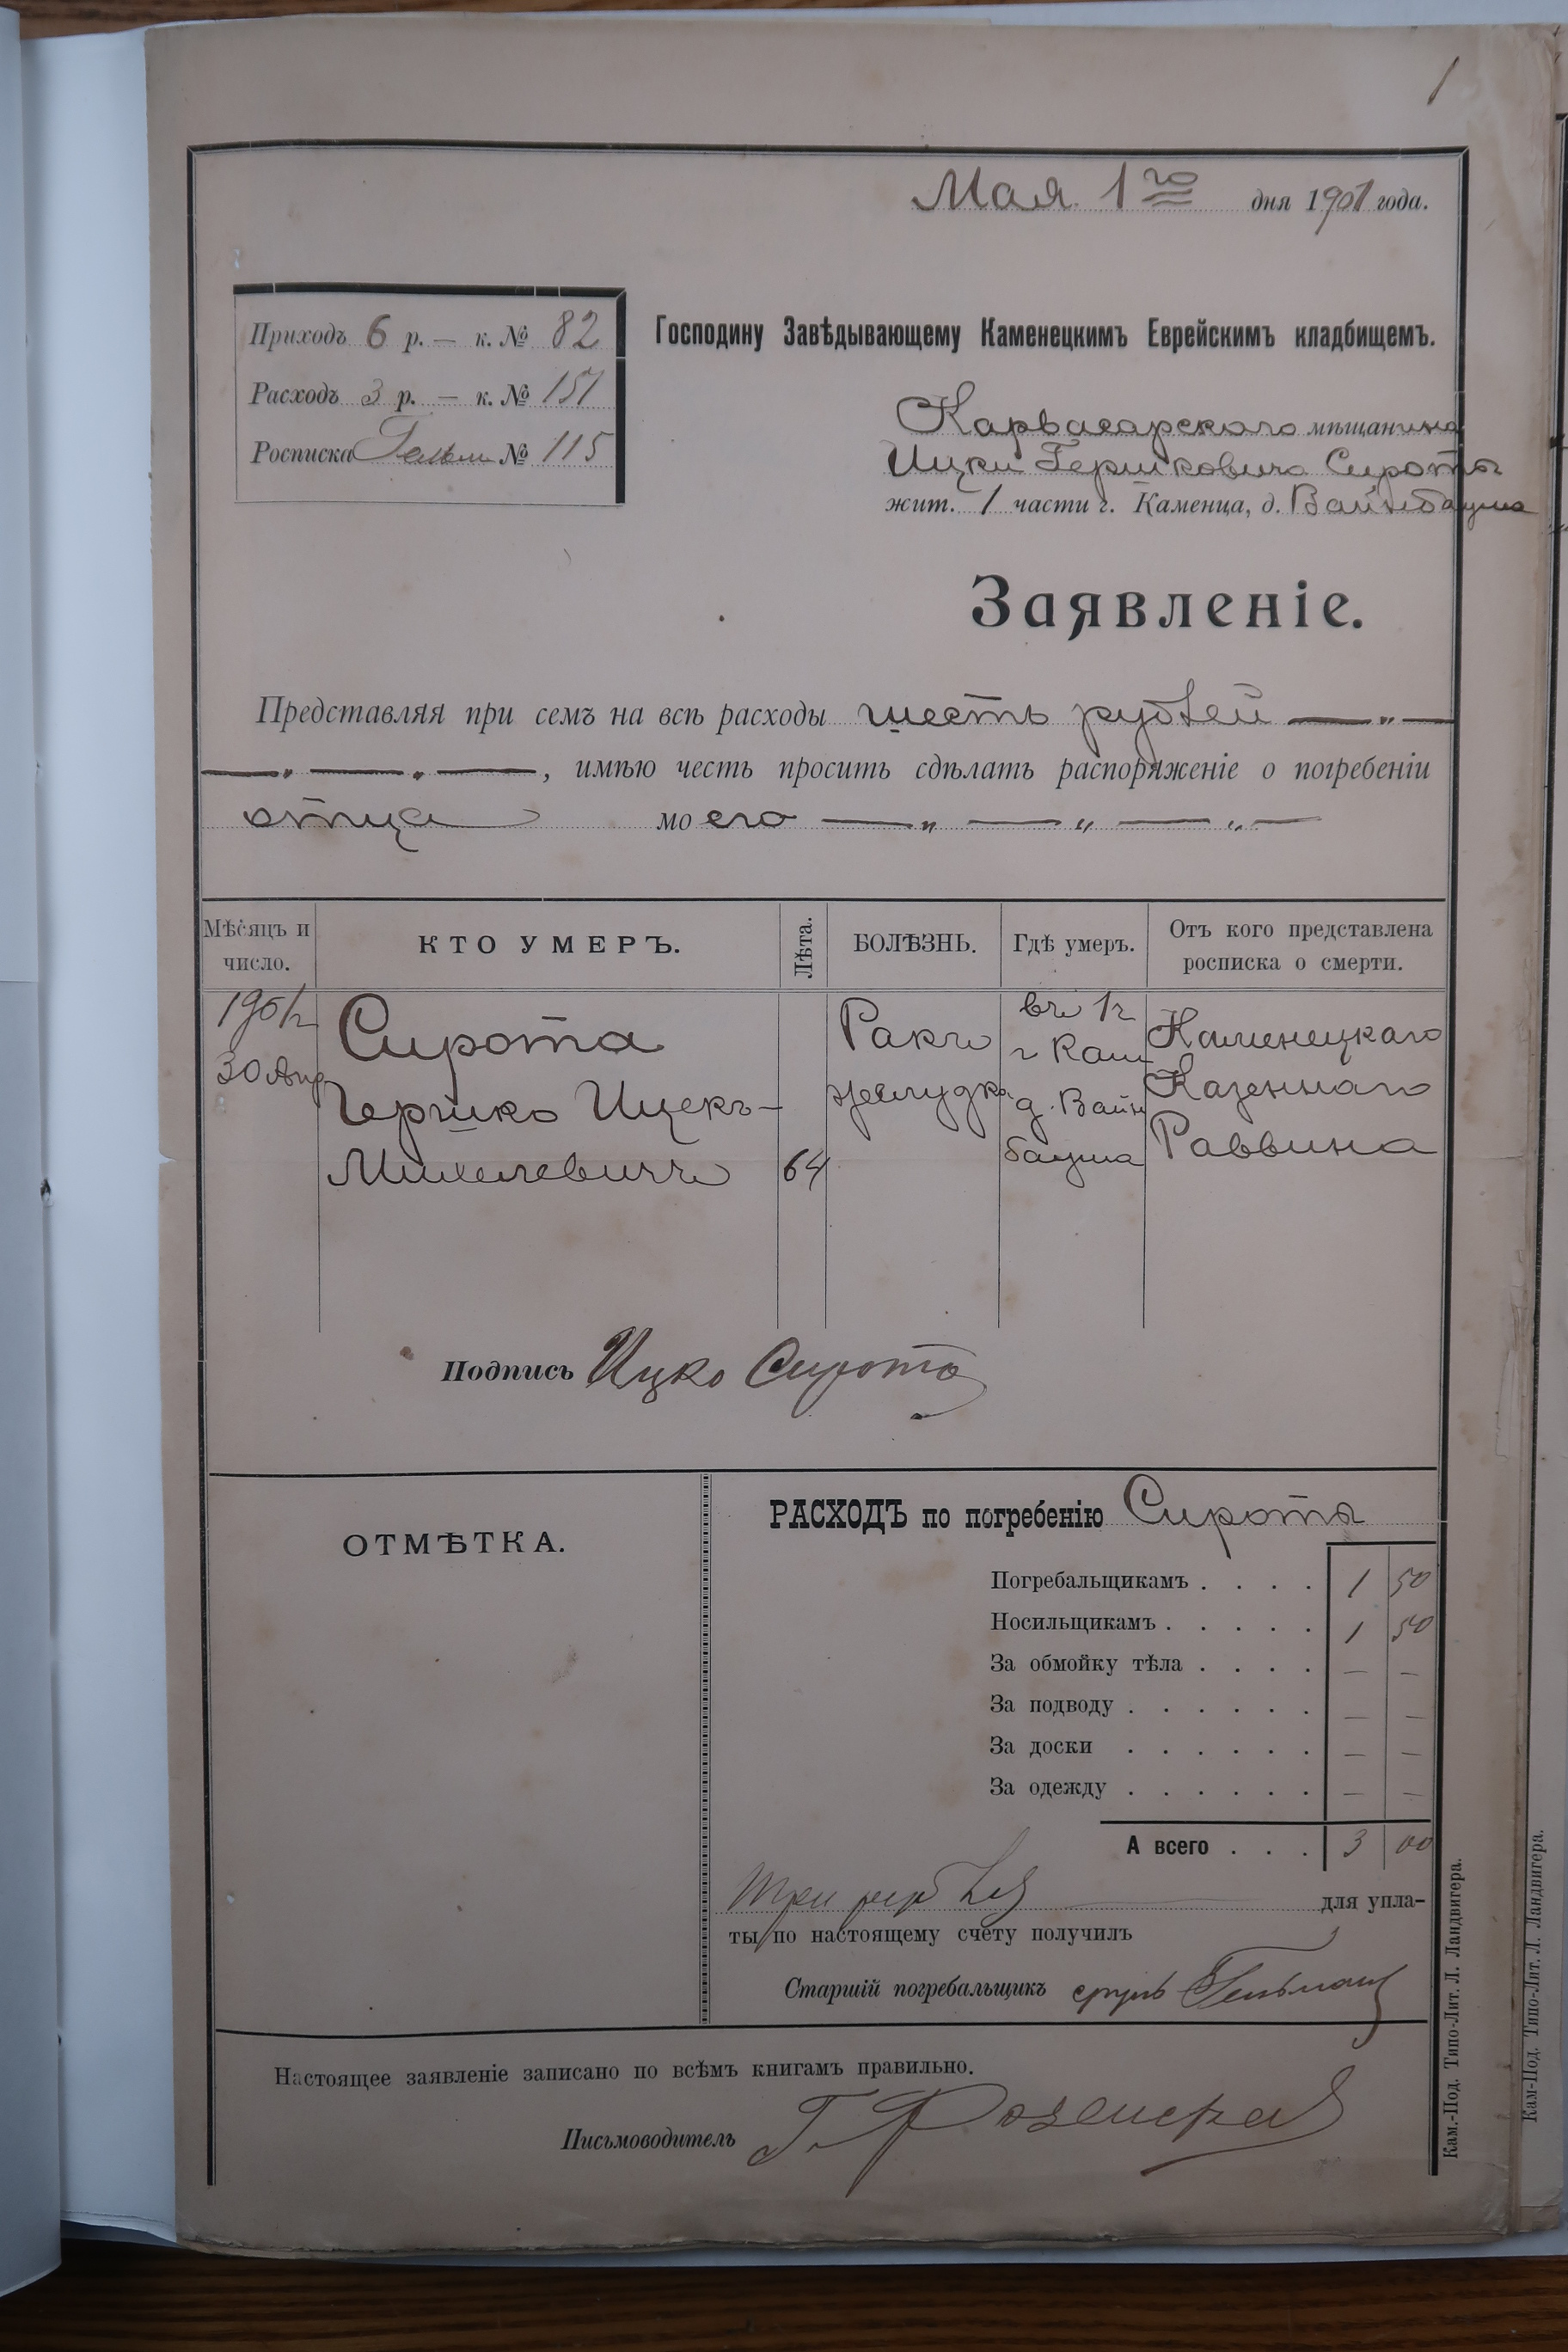 1
Мая 1го дня 1901 года.
Приходъ 6 р. — к. № 82
Расходъ 3 р. — к. № 151
Росписка № 115
Господину Завѣдывающему Каменецкимъ Еврейскимъ кладбищемъ.
Карвасарского мѣщанина
Ицки Гершковича Сироты
жит. 1 части г. Каменца, д. Вайнбаума
Заявленіе.
Представляя при семъ на всѣ расходы шесть рублей — „ —
— „ — „ —, имѣю честь просить сдѣлать распоряженіе о погребеніи
отца моего — „ — „ — „ —
Мѣсяцъ и число.
КТО УМЕРЪ.
Лѣта.
БОЛѢЗНЬ.
Гдѣ умеръ.
Отъ кого представлена
росписка о смерти.
1901г
30 Апр
Сирота
Гершко Ицекъ-
Михелевичъ
64
Ракъ
желудка
въ 1ч
г Кам
д. Вайн
баума
Каменецкаго
Казеннаго
Раввина
Подпись Ицко Сирота
ОТМѢТКА.
РАСХОДЪ по погребенію Сироты
Погребальщикамъ . . . . 1 50
Носильщикамъ . . . . . 1 50
За обмойку тѣла . . . . — —
За подводу . . . . . . — —
За доски . . . . . . — —
За одежду . . . . . . — —
А всего . . . 3 00
Три рубля для упла-
ты по настоящему счету получилъ
Старшій погребальщикъ сруль Гельман
Настоящее заявленіе записано по всѣмъ книгамъ правильно.
Письмоводитель Г.
Кам.-Под. Типо-Лит. Л. Ландвигера.
Кам-Под. Типо-Лит. Л. Ландвигера.